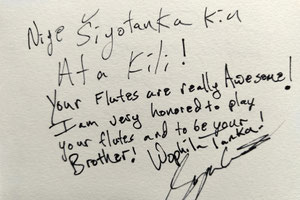 Nige Šiyotanka Kin
Ata Kili!
Your Flutes are really Awesome!
I am very honored to play
your flutes and to be your
Brother! Wophila Tanka!